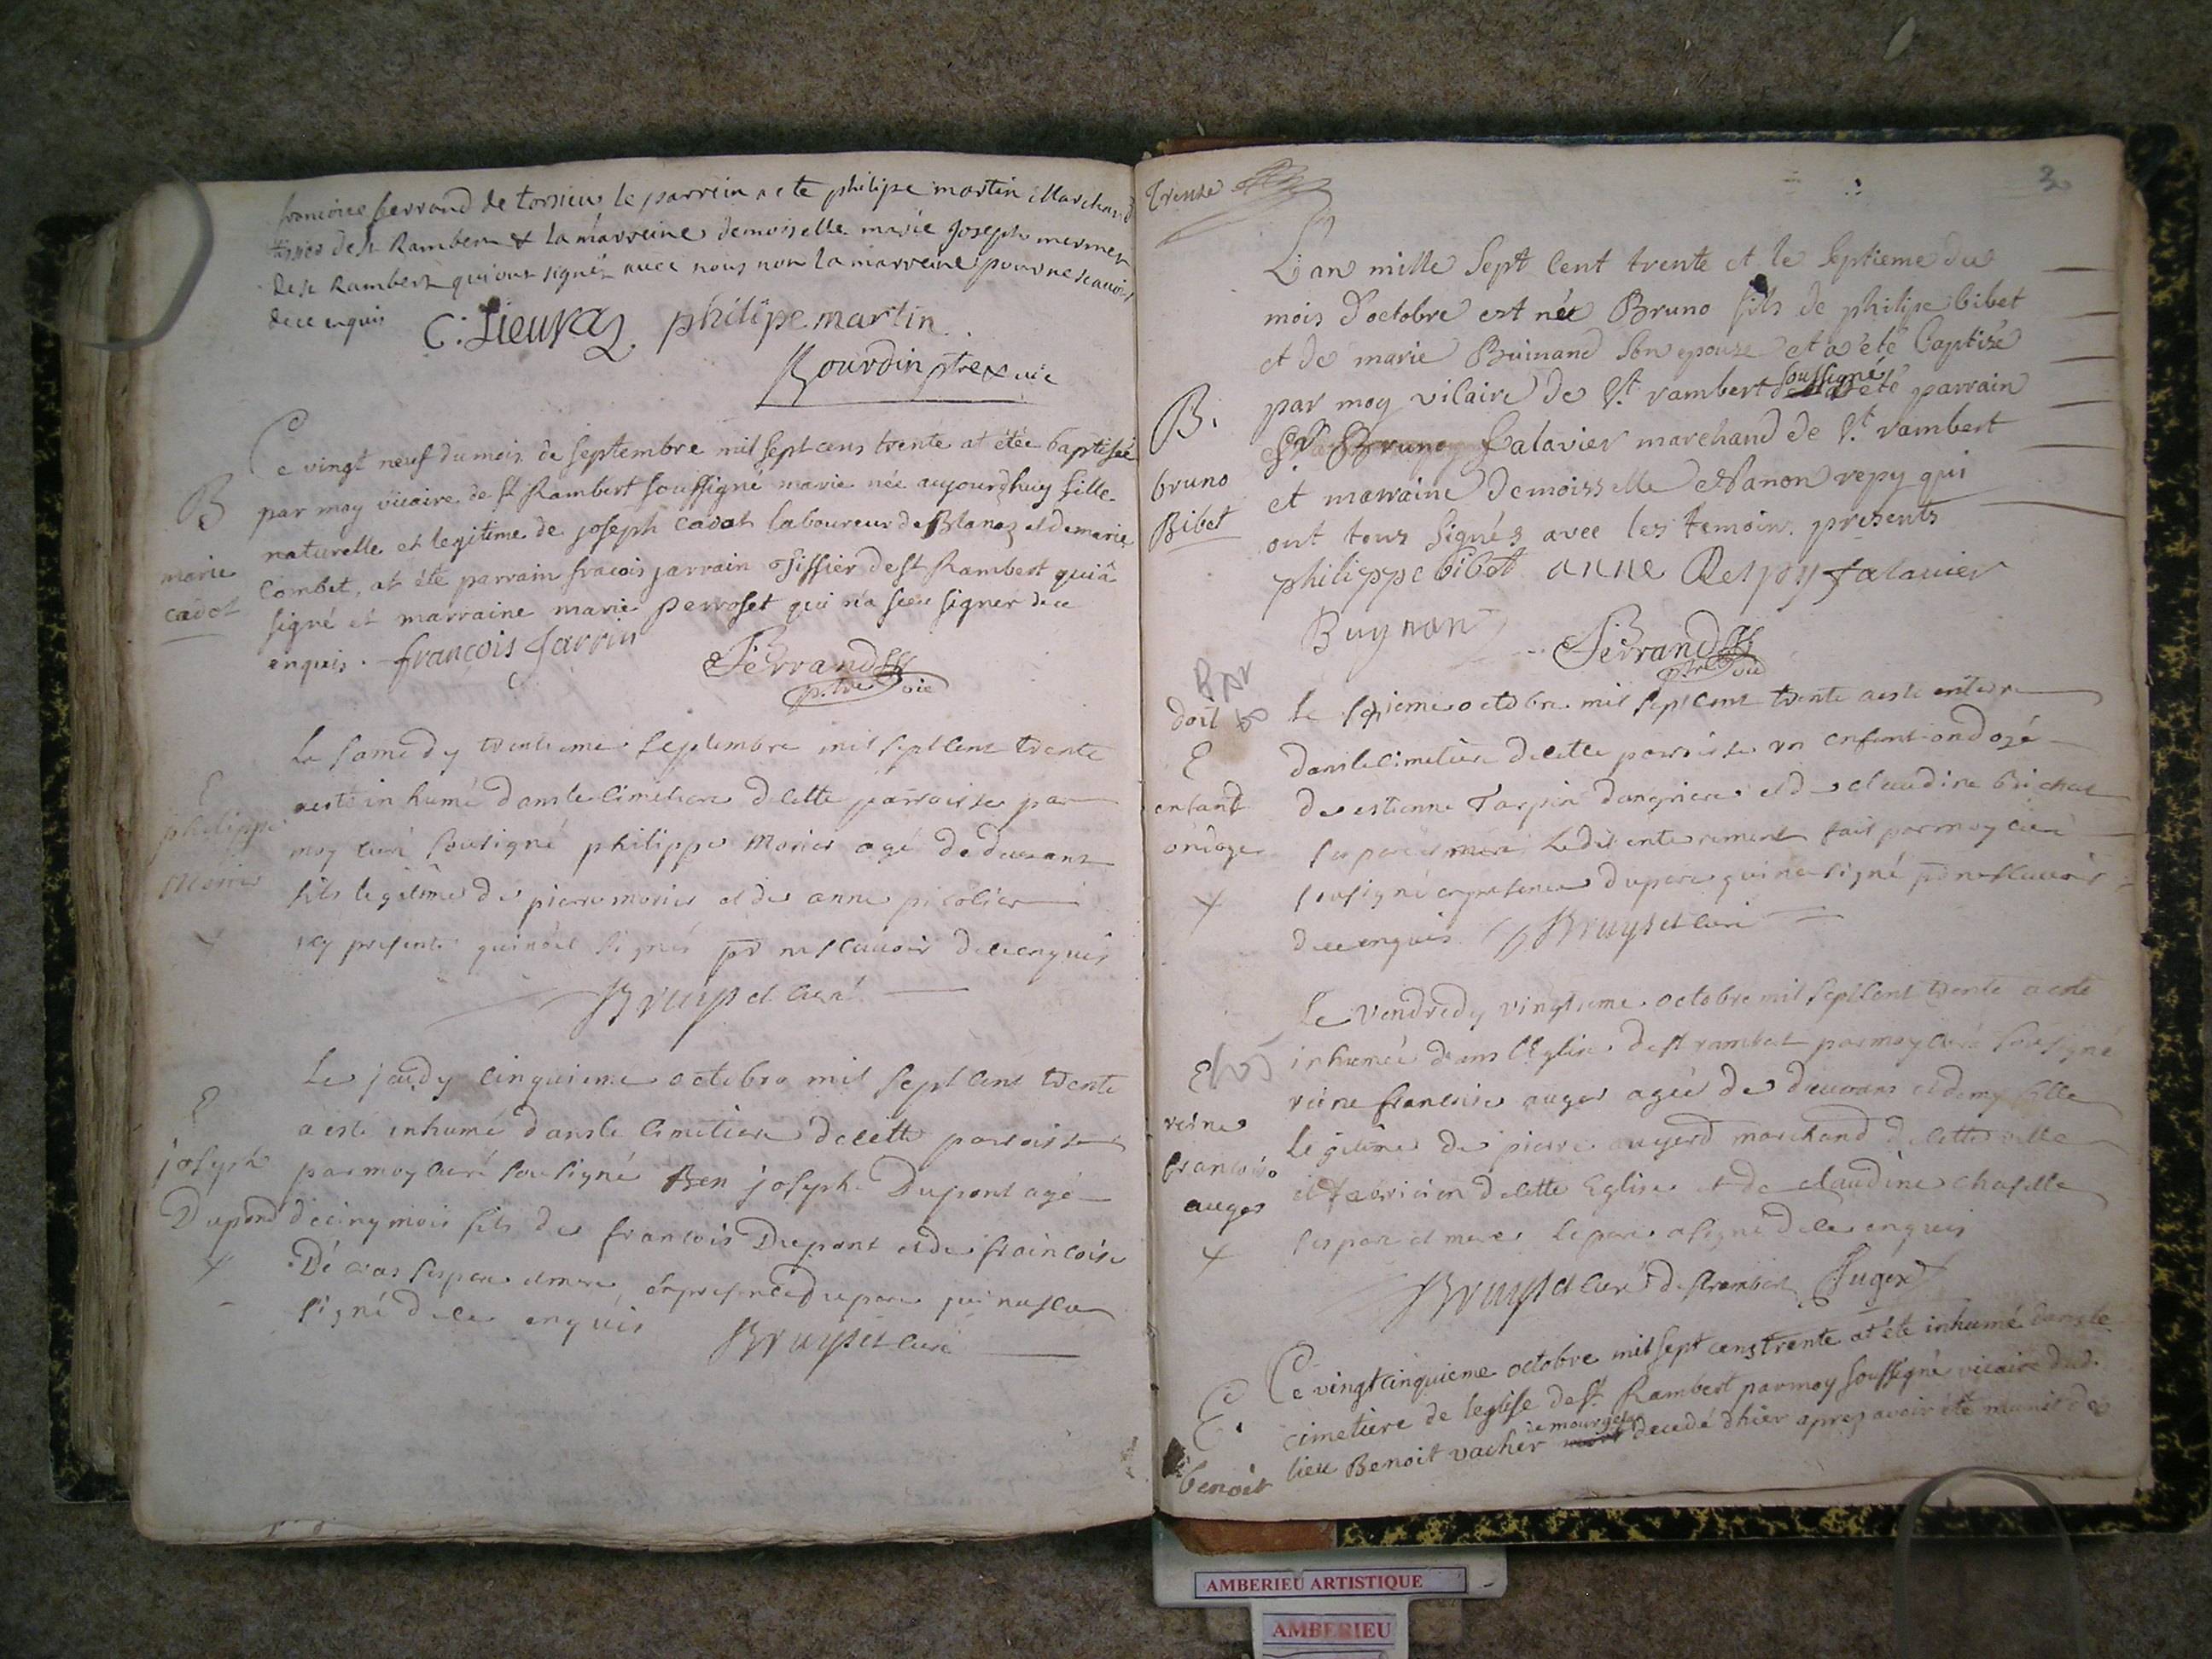 françoise ferrand de torsieu le parrein a ete philipe martin Marchand
de st Rambert & la marreine demoiselle marie Joseph mermet
de st Rambert qui ont signés avec nous non la marreine pour ne scavoir
de ce enquis
C: Lieuraz philipe martin
Gourdin ptre & vic
B
marie
cadot
Ce vingt neuf du mois de septembre mil sept cens trente at étée baptisée
par moy vicaire de st Rambert souffigné marie née aujourdhuy fille
naturelle et legitime de joseph cadot laboureur de Blanaz et de marie
Combet, at été parrain fracois jarrain de st Rambert qui a
signé et marraine marie perroset qui n'a sceu signer de ce
enquis. françois Jarrin
Ferrand
ptre vic
E
philippe
Monier
Le samedy trentieme septembre mil sept cent trente
a esté inhumé dans le cimetiere de cette parroisse par
moy curé sousigné philippe Monier agé de deux ans
fils legitime de pierre monier et de anne picolier
icy presents qui nont signés pr ne scavoir de ce enquis
Bruyset curé
E
joseph
Dupond
Le jeudy cinquieme octobre mil sept cent trente
a esté inhumé dans le cimetiere de cette parroisse
par moy curé sousigné Ben joseph Dupont agé
de cinq mois fils de francois Dupont et de francoise
Décras ses pere et mere, en presence du pere qui na sceu
signé de ce enquis Bruyset curé
trente
3
B.
bruno
Bibet
L'an mille sept cent trente et le septieme du
mois d'octobre est née Bruno fils de philipe bibet
et de marie Buinand son epouse et a été baptisé
par moy vicaire de St rambert soussigné a été parrain
Sr Bruno falavier marchand de St rambert
et marraine demoisselle Nanon repy qui
ont tous signés avec les temoins presents
philippe bibet anne Respy falavier
Buynan
Ferrand
ptre vic
doit
E
enfant
ondoye
Le octobre mil sept cent trente a esté enterré
dans le cimetiere de cette parroisse un enfant ondoyé
de estienne Tarpin dangrieres et de claudine brichat
ses pere et mere Le dit enterrement fait par moy curé
sousigné en presence du pere qui na signé pr ne scavoir
de ce enquis Bruyset curé
E
reine
francoise
auger
Le vendredy vingtieme octobre mil sept cent trente a esté
inhumée dans l'Eglise de st rambert par moy curé sousigné
reine francoise auger agée de deux ans et demy fille
legitime de pierre augerd marchand de cette ville
et de cette Eglise et de claudine chapelle
ses pere et mere le pere a signé de ce enquis
Bruyset curé de st rambert Auger
E.
benoit
Ce vingtcinquieme octobre mil sept cens trente at été inhumé dans le
cimetiere de leglise de st Rambert par moy souffigné vicaire dud.
lieu Benoit vacher de mourgelas decedé dhier apres avoir été munit des
AMBERIEU ARTISTIQUE
AMBERIEU